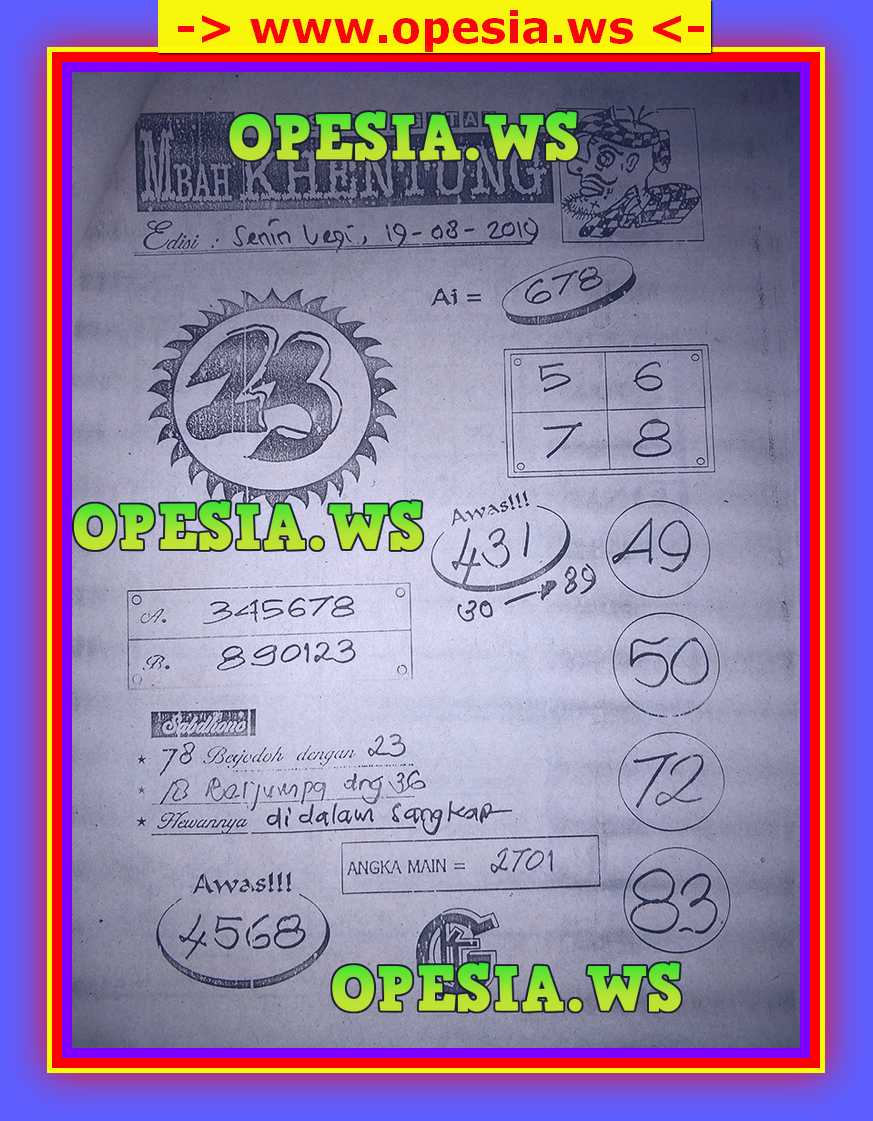 -> www.opesia.ws <-
OPESIA.WS
MBAH KHENTUNG
Edisi : Senin Legi, 19-08-2019
Ai = 678
23
5 6
7 8
Awas!!!
431
30 → 89
49
OPESIA.WS
A. 345678
B. 890123
50
Sabdhono
* 78 Berjodoh dengan 23
* 18 Barjumpa dng 36
* Hewannya didalam Sangkap
72
ANGKA MAIN = 2T01
Awas!!!
4568
83
OPESIA.WS